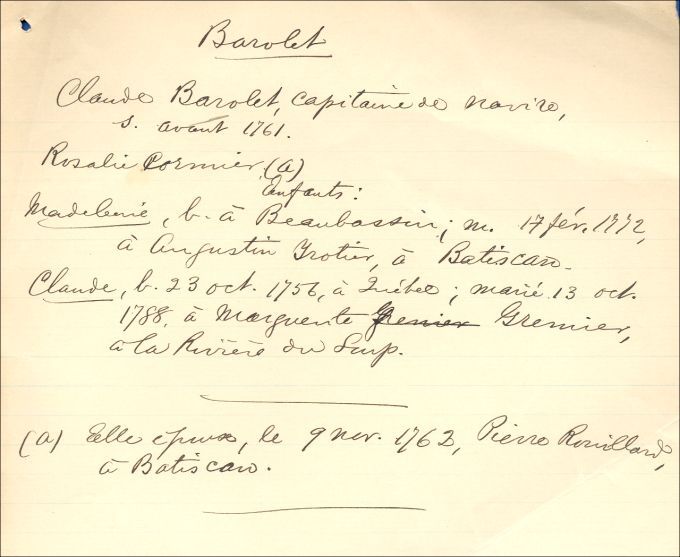 Barolet
Claude Barolet, capitaine de navire,
s. avant 1761.
Rosalie Cormier (a)
Enfants:
Madeleine, b. à Beaubassin; m. 17 fév. 1772,
à Augustin Trotier, à Batiscan.
Claude, b. 23 oct. 1756, à Québec; marié 13 oct.
1788, à Marguerite Grenier Grenier,
à la Rivière du Loup.
(a) Elle épouse, le 9 nov. 1762, Pierre Rouillard,
à Batiscan.